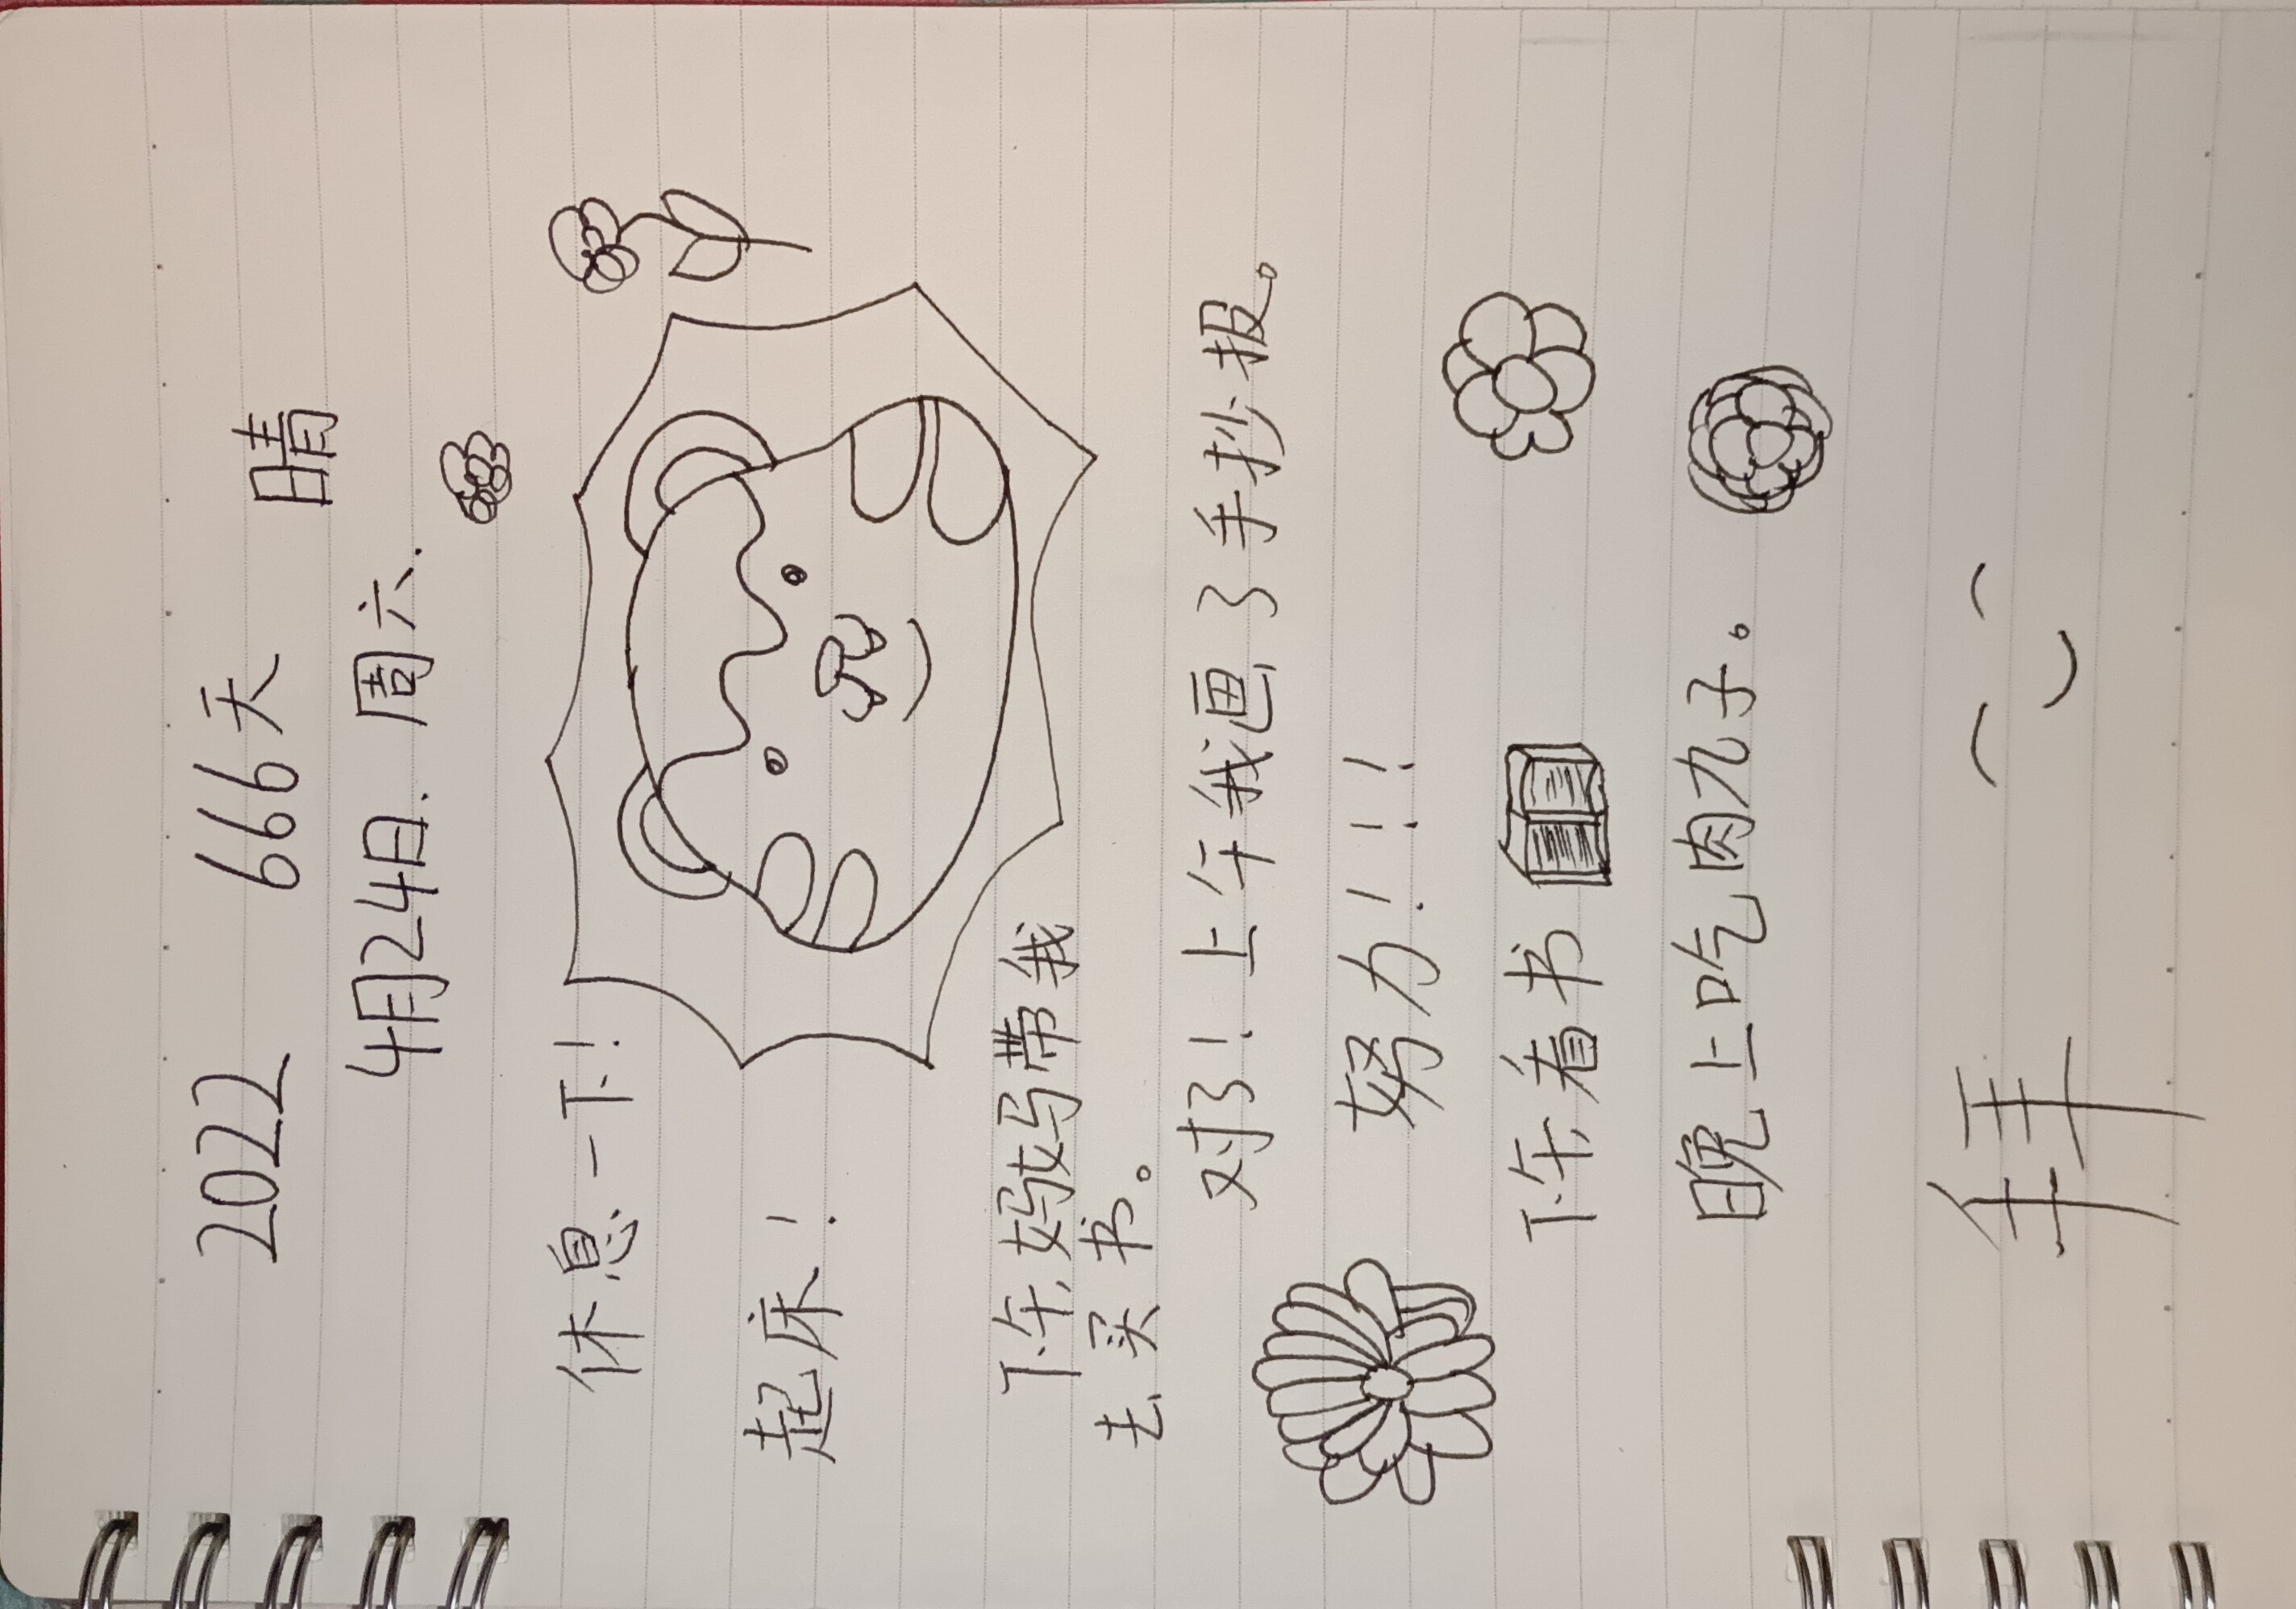 2022 666天 晴
4月24日. 周六.
休息一下!
起床!
下午妈妈带我
去买书。
对了!上午我画了手抄报。
努力!!!
下午看书
晚上吃肉九子。